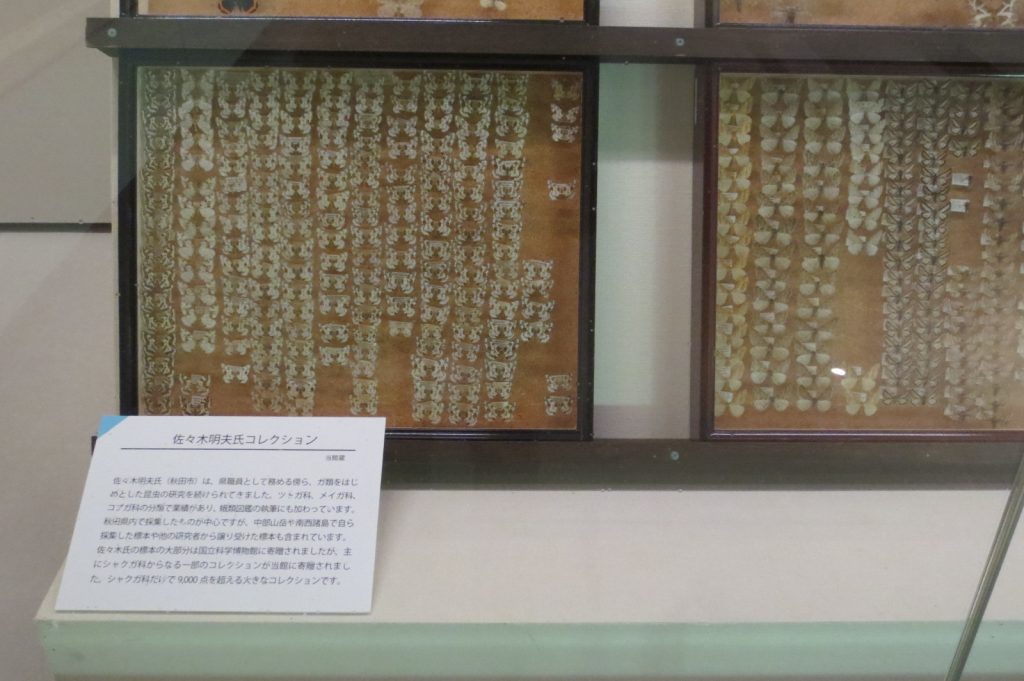 佐々木明夫氏コレクション
当館蔵
佐々木明夫氏（秋田市）は、県職員として務める傍ら、ガ類をはじ
めとした昆虫の研究を続けられてきました。ツトガ科、メイガ科、
コブガ科の分類で業績があり、蛾類図鑑の執筆にも加わっています。
秋田県内で採集したものが中心ですが、中部山岳や南西諸島で自ら
採集した標本や他の研究者から譲り受けた標本も含まれています。
佐々木氏の標本の大部分は国立科学博物館に寄贈されましたが、主
にシャクガ科からなる一部のコレクションが当館に寄贈されまし
た。シャクガ科だけで 9,000 点を超える大きなコレクションです。